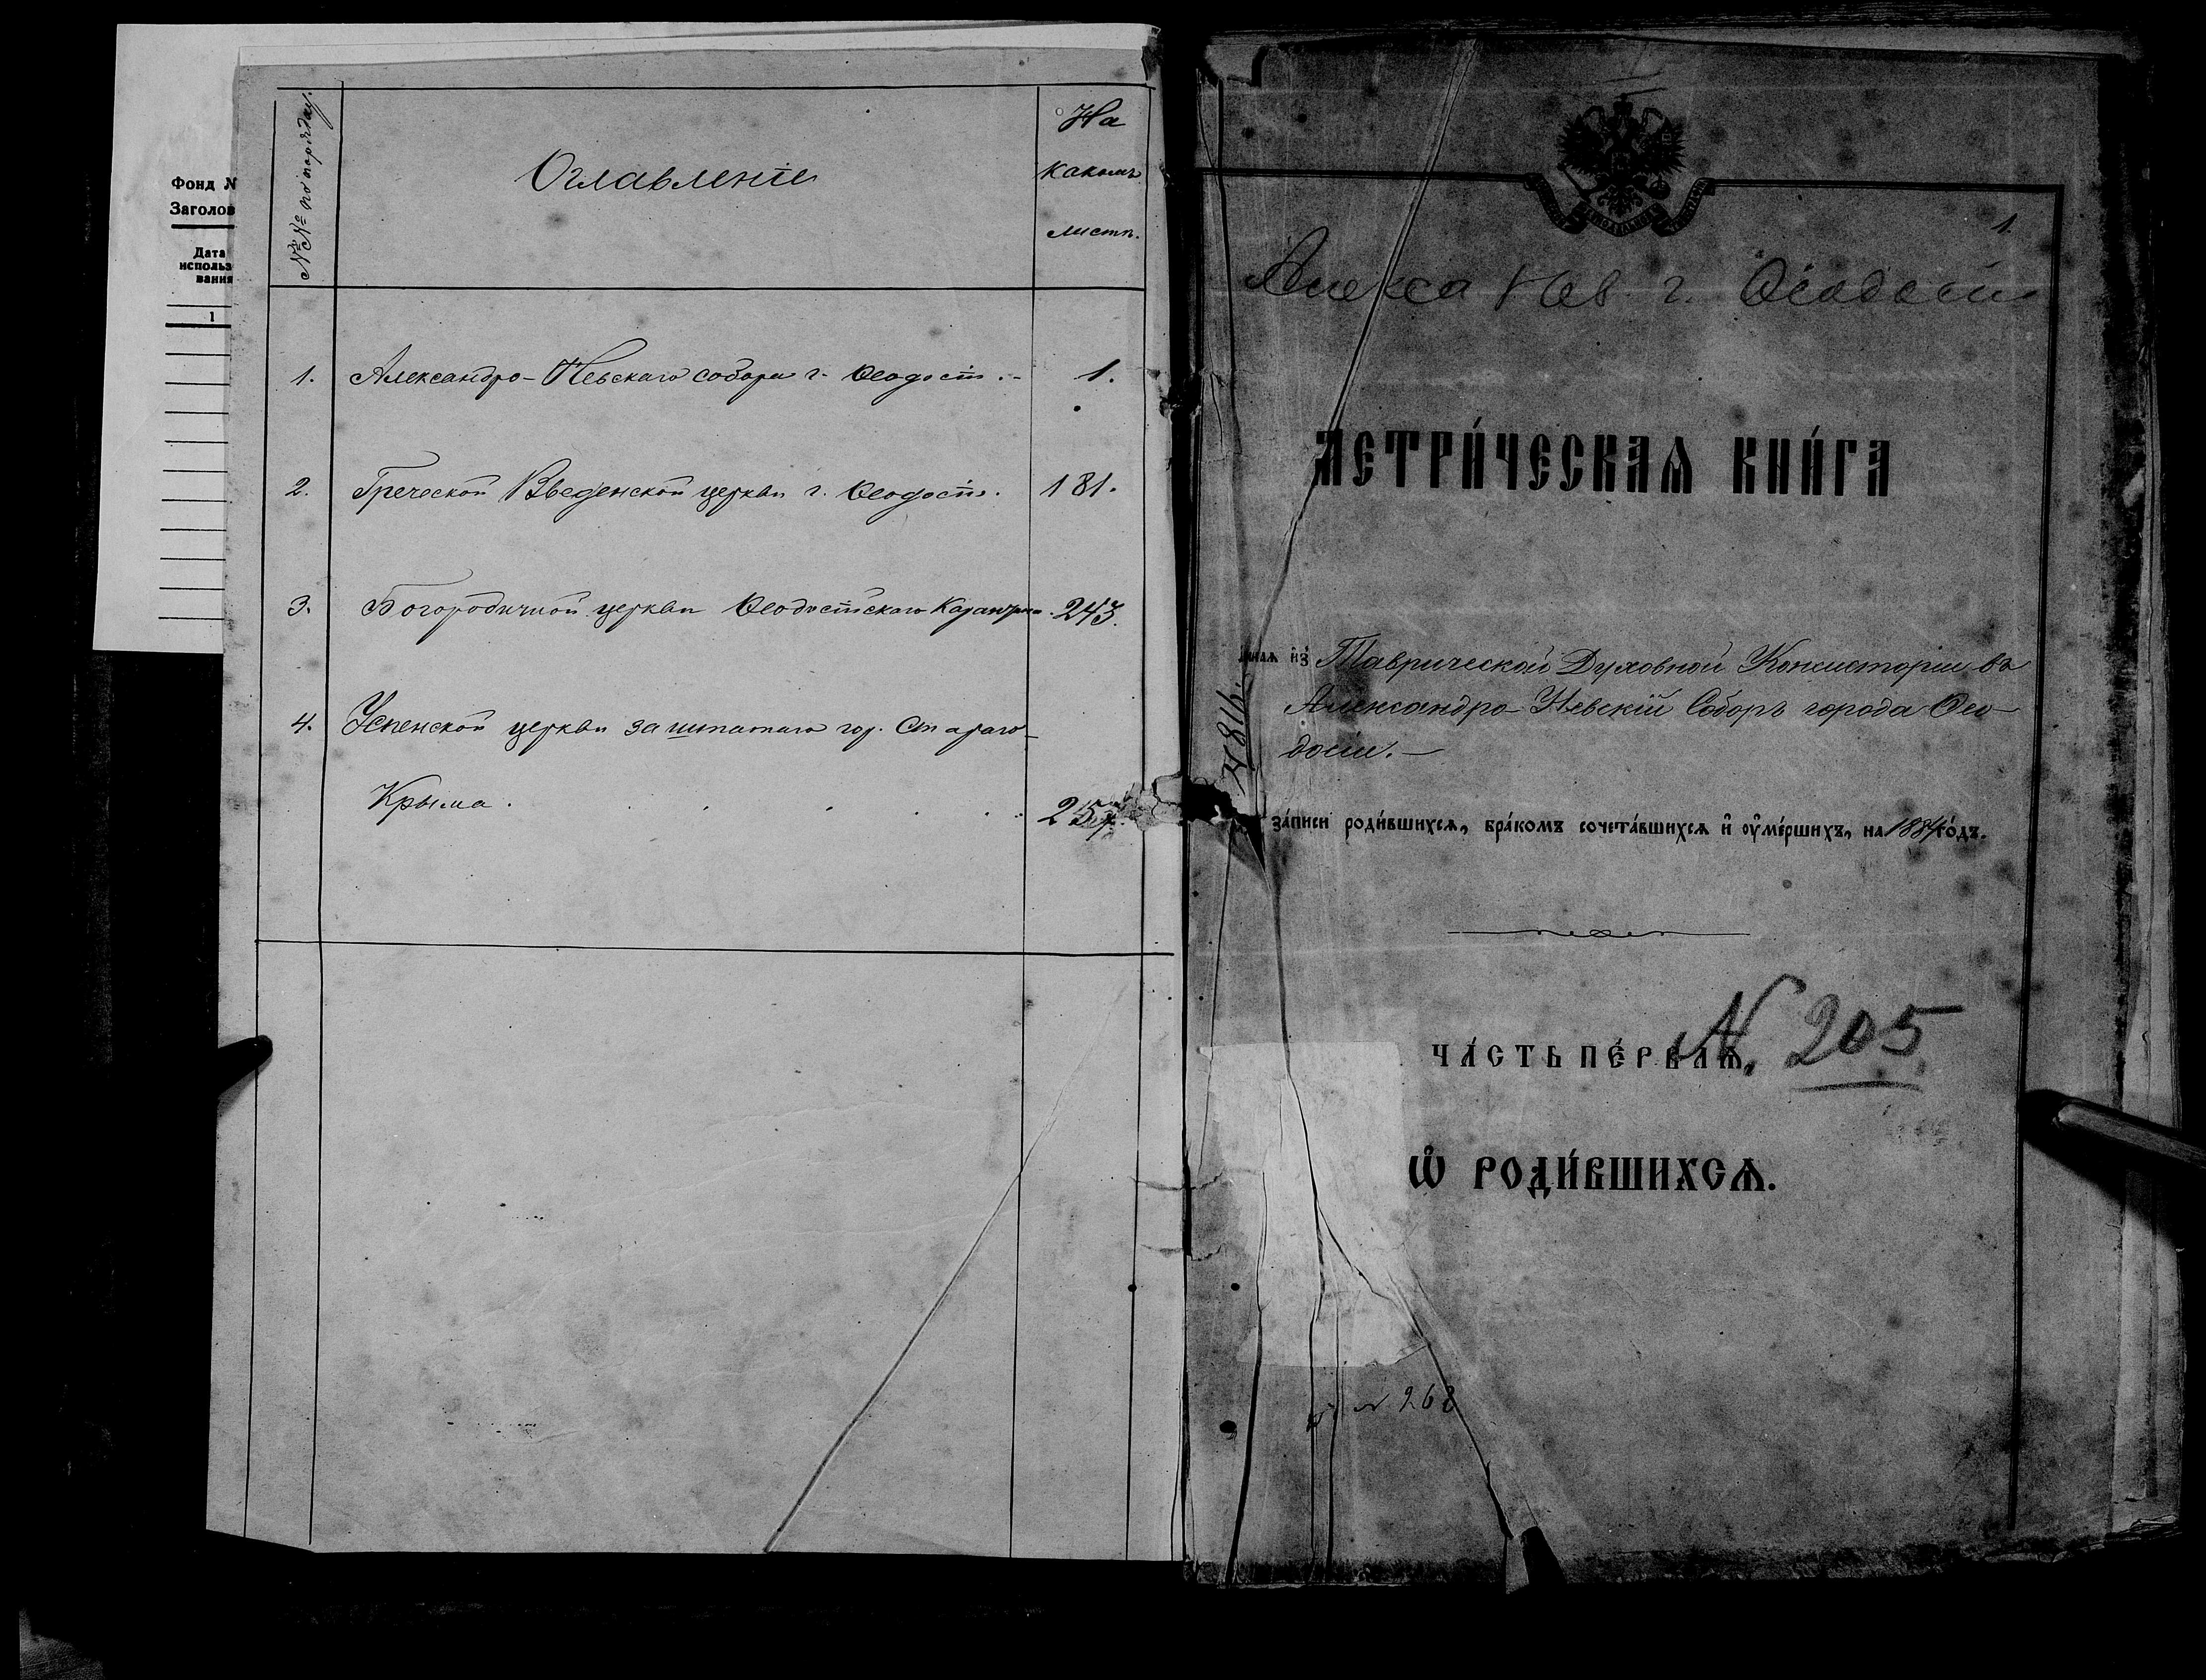 Фонд №
Заголов
Дата
использ-
вания
1
№№ по порядку.
Оглавленіе
На
какомъ
листѣ.
1. Александро-Невскаго собора г. Ѳеодосіи. 1.
2. Греческой Введенской церкви г. Ѳеодосіи. 181.
3. Богородичной церкви Ѳеодосійскаго Карантина. 243.
4. Успенской церкви заштатнаго гор. Стараго-
Крыма. 257.
1.
Алекса Нев. г. Ѳеодосіи
МЕТРИ́ЧЕСКАѦ КНИ́ГА
даннаѧ и҆з̾ Таврической Духовной Консисторіи въ
Александро-Невскій Соборъ города Ѳео-
досіи.—
4816.
за́писи роди́вшихсѧ, бра́комъ сочета́вшихсѧ и҆ ᲂу҆ме́ршихъ, на 1884 го́дъ.
ЧА́СТЬ ПЕ́РВАѦ,
N 205
Ѡ҆ РОДИ́ВШИХСѦ.
N 268